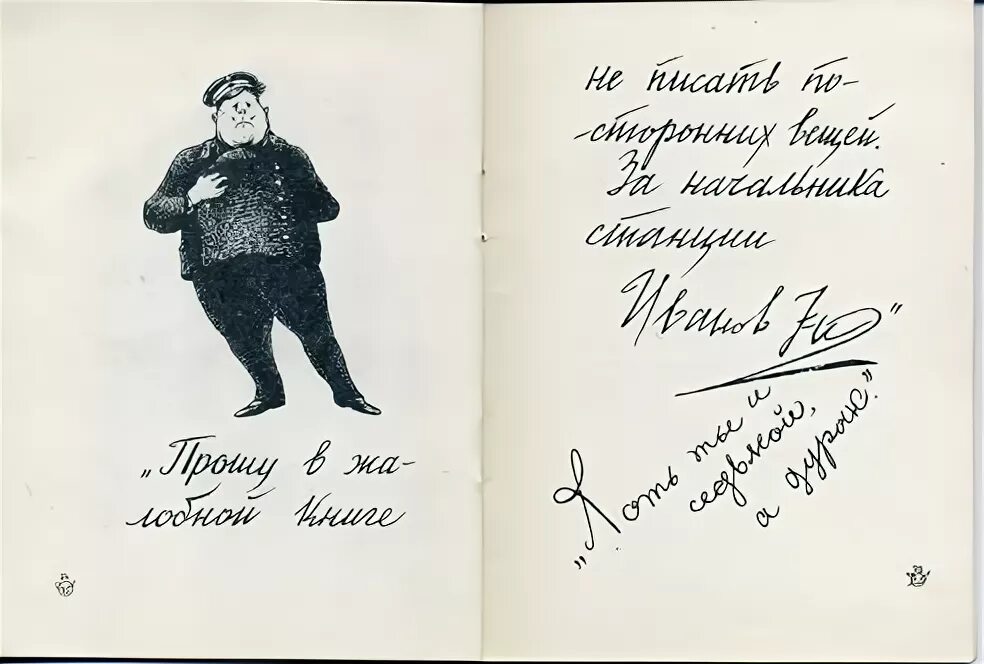 „Прошу в жа-
лобной книге
не писать по-
-сторонних вещей.
За начальника
станции
Иванов 7-й"
„Хоть ты и
седьмой,
а дурак."